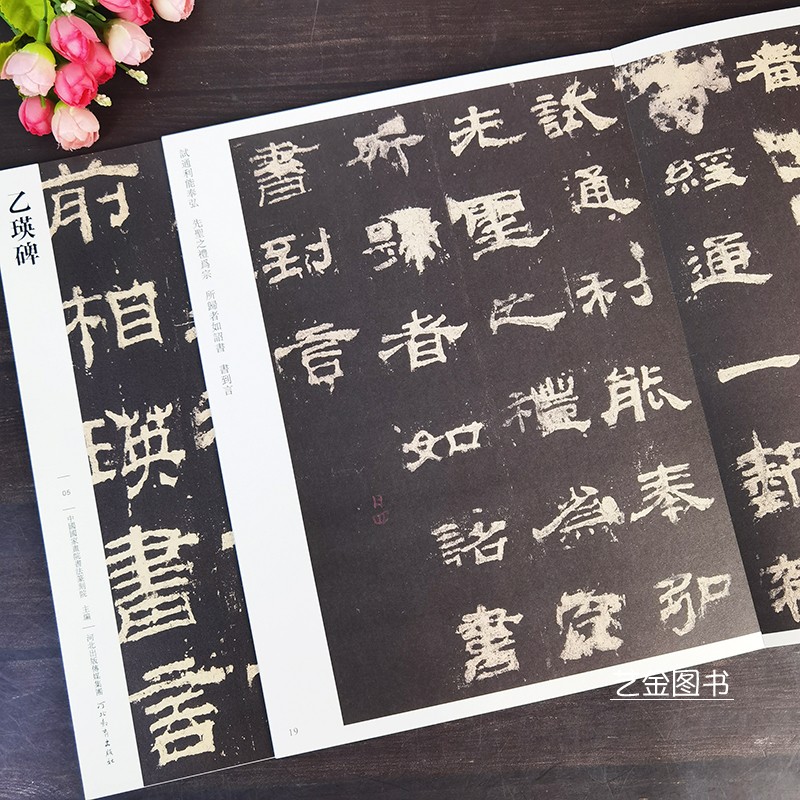 乙瑛碑
05
中國國家畫院書法篆刻院 主編
河北出版傳媒集團
河北教育出版社
前相瑛書言
經通一藝
試通利能奉弘
先聖之禮爲宗
所歸者如詔書
書到言
試通利能奉弘 先聖之禮爲宗 所歸者如詔書 書到言
19
金图书